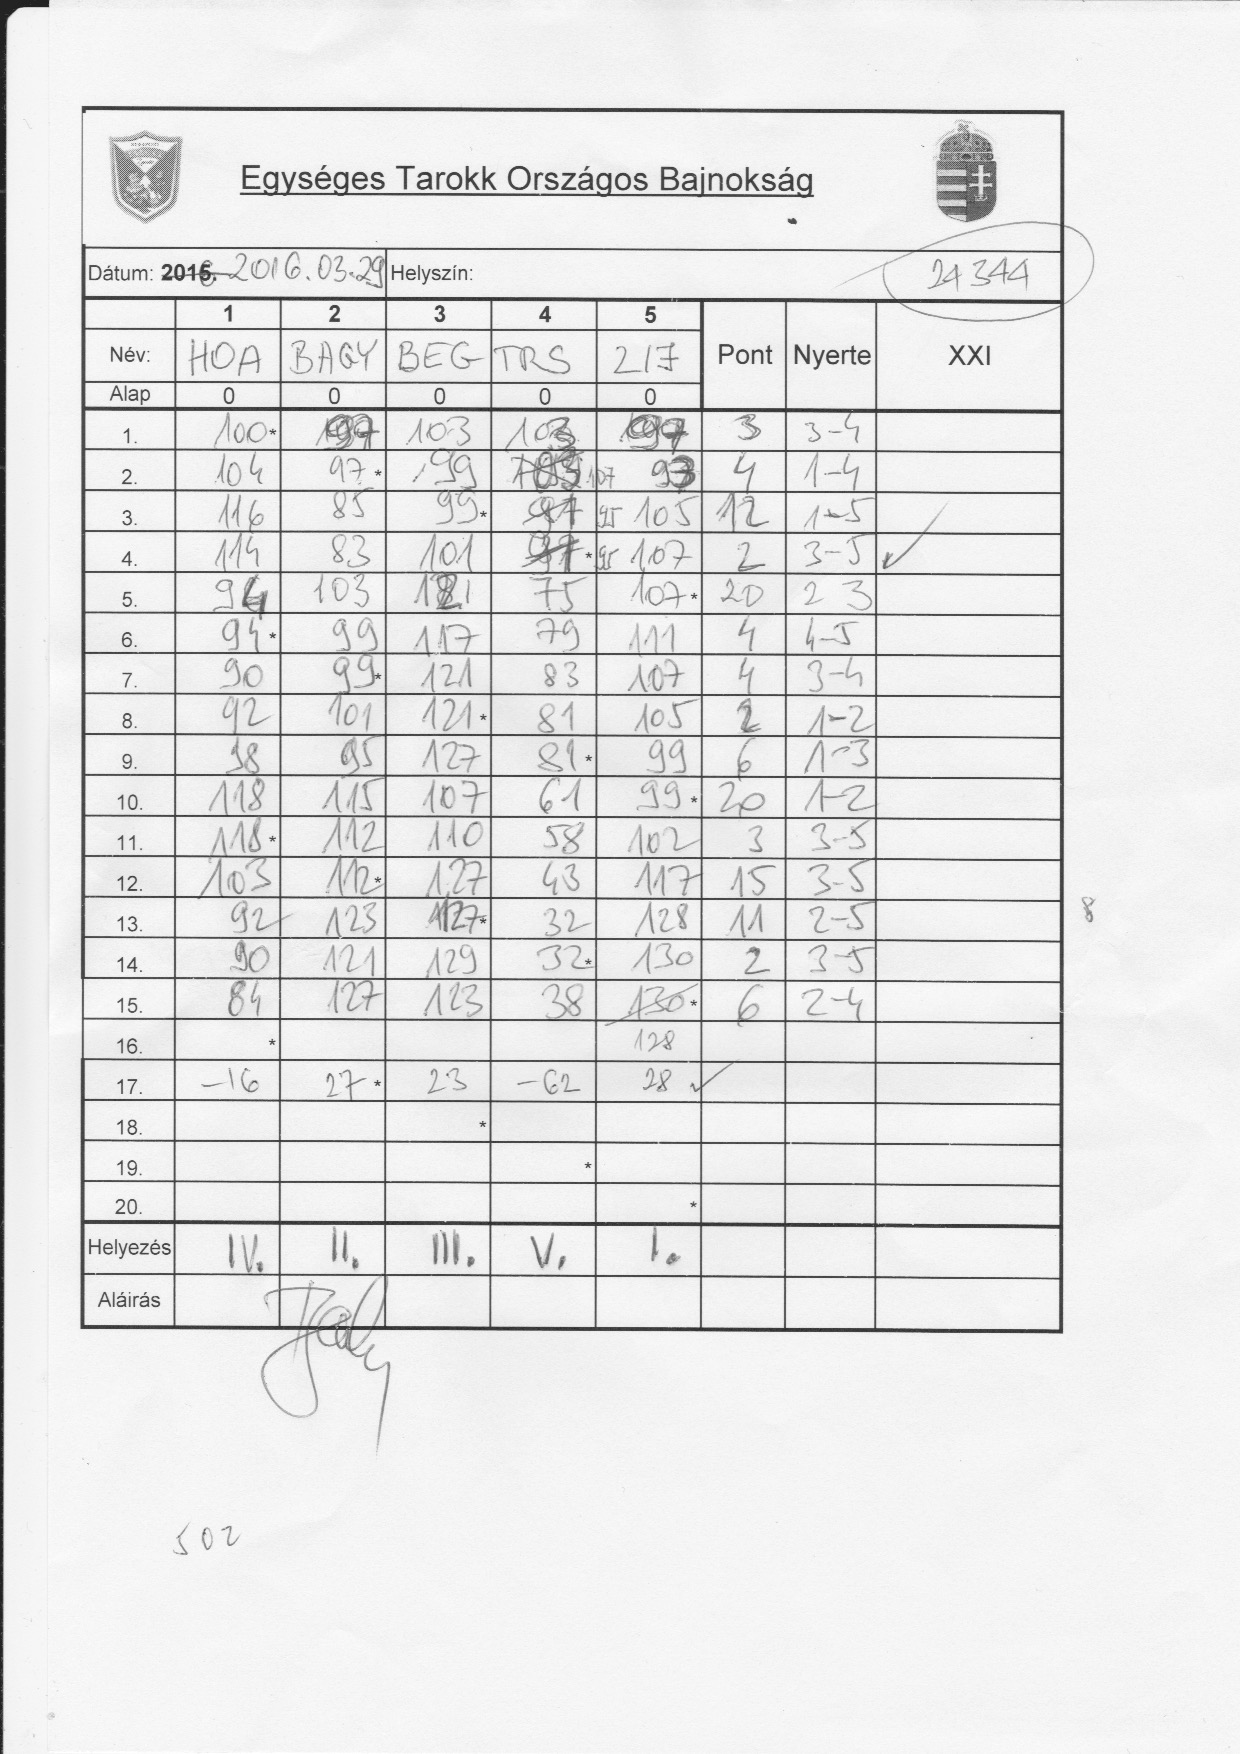 Egységes Tarokk Országos Bajnokság
Dátum: 2015. 2016.03.29 Helyszín: 24344
1 2 3 4 5
Név: HOA BAGY BEG TRS 217 Pont Nyerte XXI
Alap 0 0 0 0 0
1. 100* 97 103 103 97 3 3-4
2. 104 97* 99 107 93 4 1-4
3. 116 85 99* 97 95 105 12 1-5
4. 114 83 101 97* 95 107 2 3-5
5. 94 103 121 75 107* 20 2 3
6. 94* 99 117 79 111 4 4-5
7. 90 99* 121 83 107 4 3-4
8. 92 101 121* 81 105 2 1-2
9. 98 95 127 81* 99 6 1-3
10. 118 115 107 61 99* 20 1-2
11. 118* 112 110 58 102 3 3-5
12. 103 112* 127 43 117 15 3-5
13. 92 123 127* 32 128 11 2-5 8
14. 90 121 129 32* 130 2 3-5
15. 84 127 123 38 130* 6 2-4
16. * 128
17. -16 27* 23 -62 28
18. *
19. *
20. *
Helyezés IV. II. III. V. I.
Aláirás
502